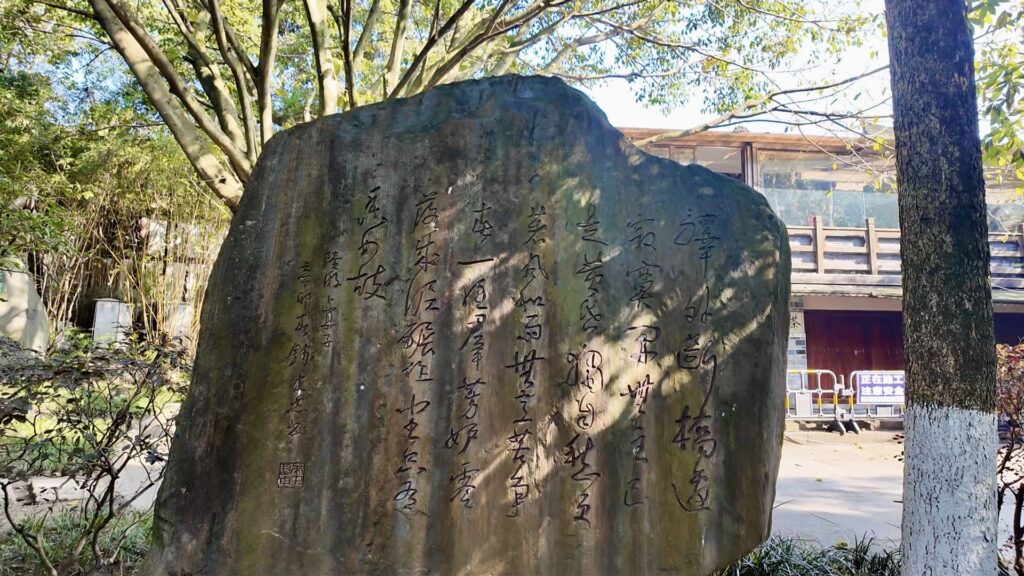 驛外断橋邊
寂寞開無主已
是黄昏獨自愁更
著风和雨無意苦争
春一任群芳妒零
落成泥碾作尘只有
香如故
陸游卜算子
辛卯春
正在施工